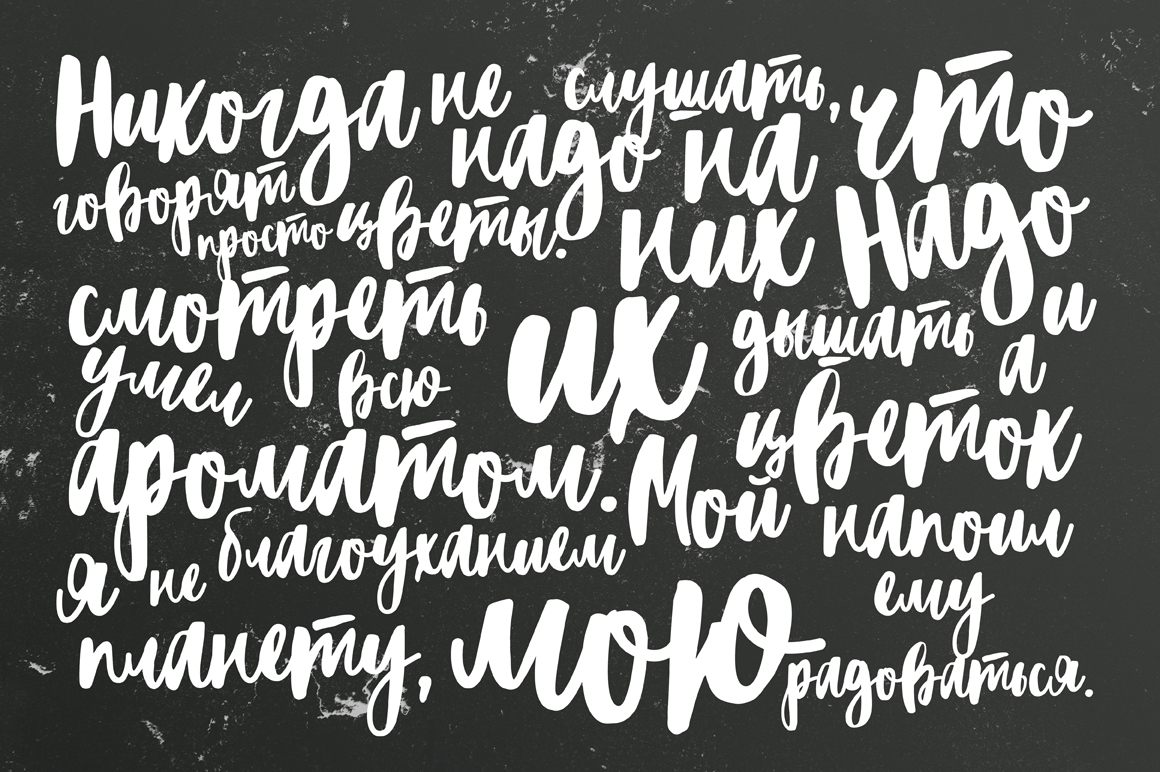 Никогда не надо слушать, что
говорят цветы. Надо
просто на них
смотреть и дышать
их
ароматом. Мой цветок
напоил благоуханием
всю мою
планету, а
я не
умел ему
радоваться.